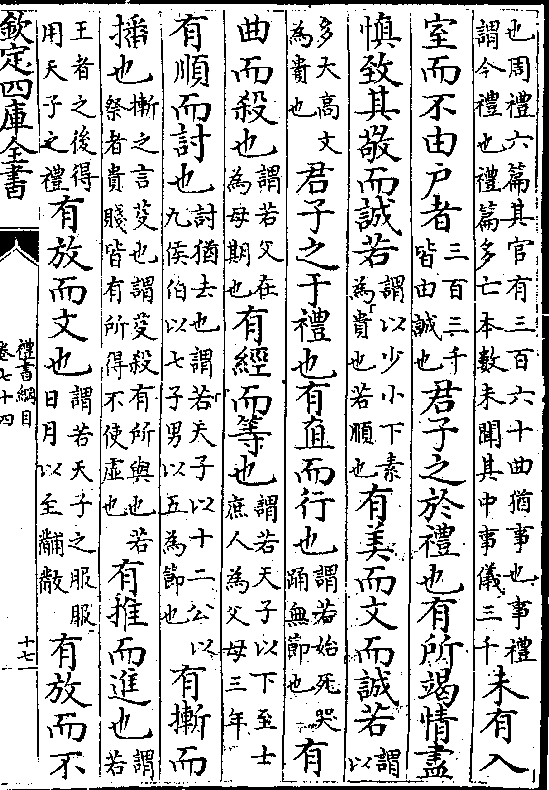 也周禮六篇其官有三百六十曲猶事也事禮謂今禮也禮篇多亡本數未聞其中事儀三千未有入
室而不由戸者三百三千皆由誠也君子之於禮也有所竭情盡
慎致其敬而誠若謂以少小下素為貴也若順也有美而文而誠若謂以
多大高文為貴也君子之于禮也有直而行也謂若始死哭踊無節也有
曲而殺也謂若父在為母期也有經而等也謂若天子以下至士庶人為父母三年
有順而討也討猶去也謂若天子以十二公以九侯伯以七子男以五為節也有摲而
播也摲之言芟也謂芟殺有所與也若祭者貴賤皆有所得不使虛也有推而進也謂若
王者之後得用天子之禮有放而文也謂若天子之服服日月以至黼黻有放而不
欽定四庫全書
禮書綱目
卷七十四
十七